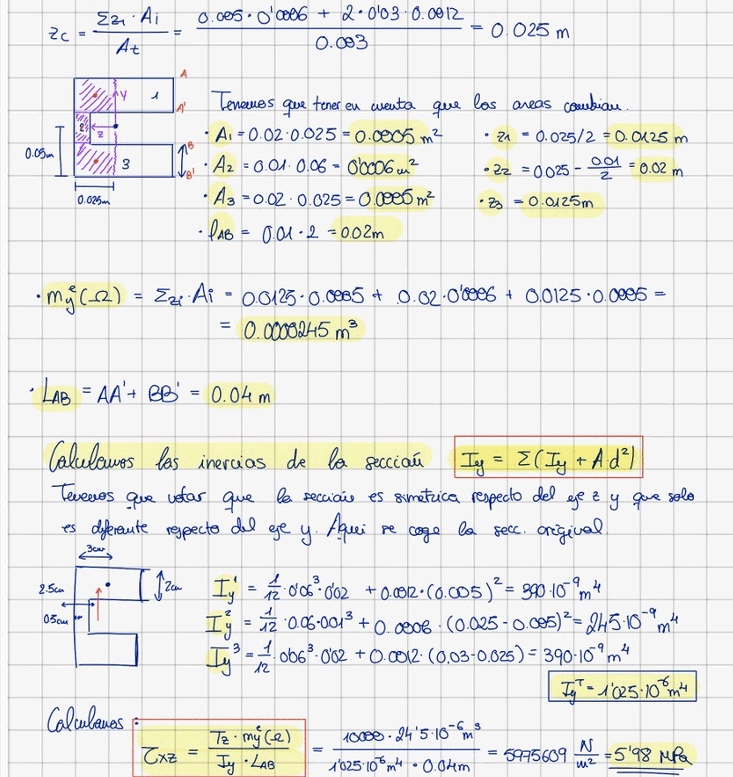 zc = Σzi · Ai / At = 0.005 · 0'0006 + 2 · 0'03 · 0.0012 / 0.003 = 0.025 m
A
Y 1 Tenemos que tener en cuenta que las areas cambian.
A'
2 z · A1 = 0.02 · 0.025 = 0.0005 m² · z1 = 0.025/2 = 0.0125 m
0.05m 3 B B' · A2 = 0.01 · 0.06 = 0'0006 m² · z2 = 0.025 - 0.01/2 = 0.02 m
0.025m · A3 = 0.02 · 0.025 = 0.0005 m² · z3 = 0.0125m
· lAB = 0.01 · 2 = 0.02m
· m_y^e(Ω) = Σzi · Ai = 0.0125 · 0.0005 + 0.02 · 0'0006 + 0.0125 · 0.0005 =
= 0.0000245 m³
· LAB = AA' + BB' = 0.04 m
Calculamos las inercias de la sección Iy = Σ(Iy + A d²)
Tenemos que notar que la sección es simétrica respecto del eje z y que solo
es diferente respecto del eje y. Aqui se coge la secc. original.
3cm
2.5cm 2cm Iy¹ = 1/12 · 0'06³ · 0'02 + 0.0012 · (0.005)² = 390·10⁻⁹ m⁴
0.5cm Iy² = 1/12 · 0.06 · 0.01³ + 0.0006 · (0.025 - 0.005)² = 245·10⁻⁹ m⁴
Iy³ = 1/12 · 0'06³ · 0'02 + 0.0012 · (0.03 - 0.025)² = 390·10⁻⁹ m⁴
Iyᵀ = 1'025·10⁻⁶ m⁴
Calculamos :
τxz = Tz · m_y^e(Ω) / Iy · LAB = 10000 · 24'5·10⁻⁶ m³ / 1'025·10⁻⁶ m⁴ · 0.04m = 5975609 N/m² = 5'98 MPa